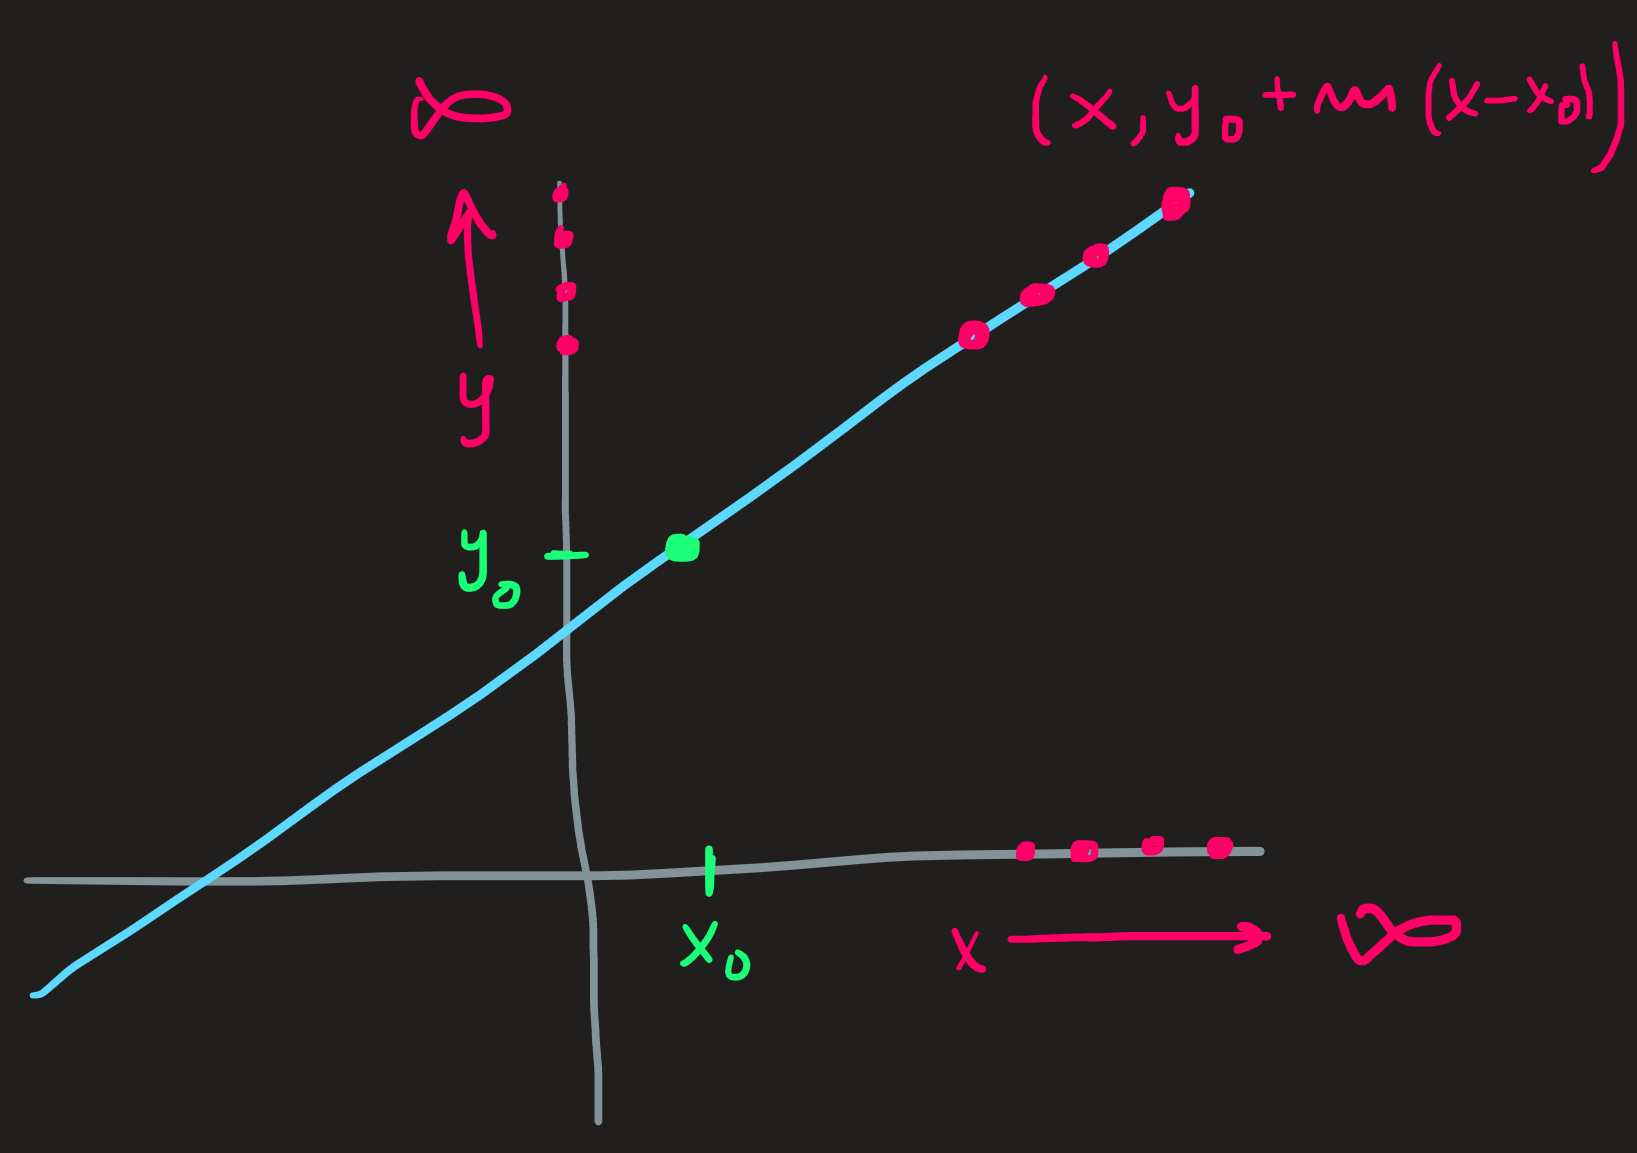 ∞
(x, y₀ + m (x-x₀))
y
y₀
x₀
x → ∞